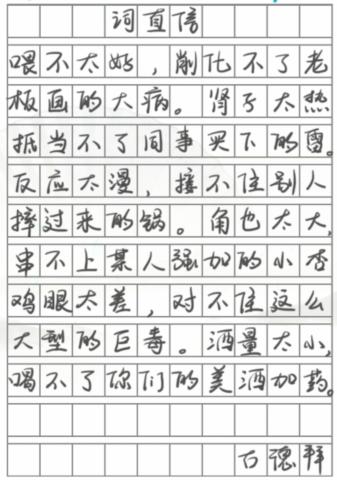 词直信
喂不太好，削化不了老
板画的大病。肾子太热
抵当不了同事买下的雷。
反应太漫，接不住别人
摔过来的锅。角也太大，
串不上某人强加的小杏
鸡眼太差，对不住这么
大型的巨毒。酒量太小，
喝不了你们的美酒加药。
德拜